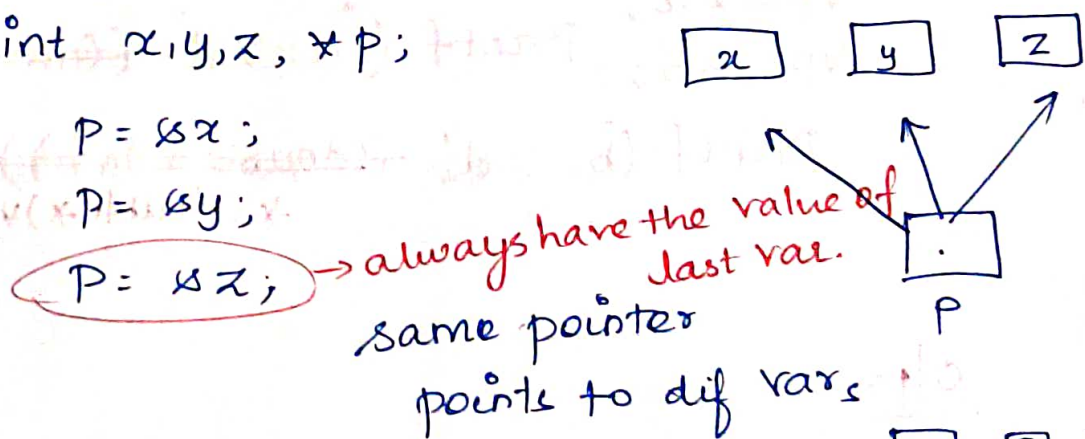 int x,y,z, *p;
x y z
p = &x;
p = &y;
p = &z; → always have the value of
last var.
p
same pointer
points to dif vars